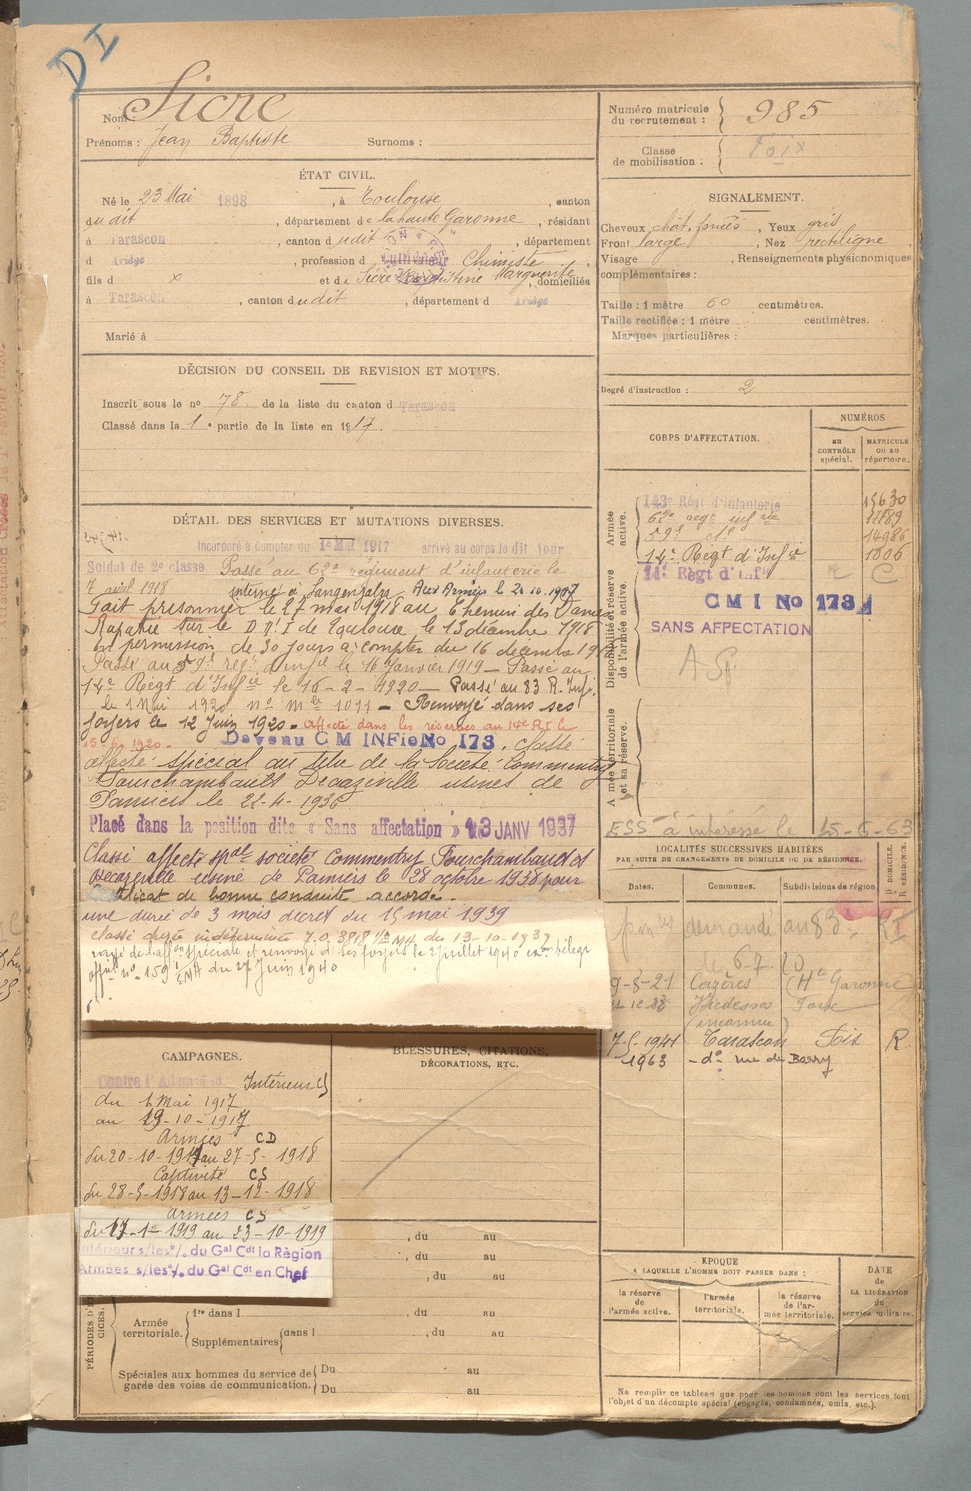 DI
Nom Sicre
Prénoms : Jean Baptiste Surnoms :
ÉTAT CIVIL.
Né le 23 Mai 1898, à Toulouse, canton
dudit, département de la haute Garonne, résidant
à Tarascon, canton dudit, département
d Ariège, profession de Cultivateur Chimiste
fils d x et de Sicre Baptistine Marguerite, domiciliés
à Tarascon, canton dudit, département d Ariège
Marié à
DÉCISION DU CONSEIL DE REVISION ET MOTIFS.
Inscrit sous le no 78 de la liste du canton d Tarascon
Classé dans la 1e partie de la liste en 1917.
DÉTAIL DES SERVICES ET MUTATIONS DIVERSES.
Incorporé à compter du 1er Mai 1917 arrivé au corps le dit jour
Soldat de 2e classe Passé au 62e régiment d'infanterie le
7 avril 1918 interné à Langensalza Aux Armées le 20.10.1907
Fait prisonnier le 27 mai 1918 au Chemin des Dames
Rapatrié sur le D.d'I de Toulouse le 13 décembre 1918
En permission de 30 jours à compter du 16 décembre 1918
Passé au 59e régt d'infie le 16 Janvier 1919 — Passé au
14e Régt d'Infie le 16-2-1920 — Passé au 83 R. Infi.
le 1 Mai 1920 no Mle 1011 — Renvoyé dans ses
foyers le 12 Juin 1920. Affecté dans les réserves au 14e R I le
15-6-1920. Devenu C M INFie No 173, classé
affecté spécial au titre de la Société Commentry
Fourchambault Decazeville usines de
Pamiers le 22-4-1936
Placé dans la position dite « Sans affectation » 13 JANV 1937
Classé affecté spal société Commentry Fourchambault et
Decazeville usine de Pamiers le 28 octobre 1938 pour
Certificat de bonne conduite accordé.
une durée de 3 mois décret du 15 mai 1939
classé durée indéterminée 7.0. 3818 1/2 MA du 13-10-1939
rayé de l'affon spéciale et renvoyé dans ses foyers le 2 juillet 1940
no 159 EMA du 27 Juin 1940
CAMPAGNES.
Contre l'Allemagne Intérieur CS
du 1 Mai 1917
au 19-10-1917
Armées CD
du 20-10-1917 au 27-5-1918
Captivité CS
du 28-5-1918 au 13-12-1918
Armées CS
du 17-1er-1919 au 23-10-1919
Intérieur s/les o/. du Gal Cdt la Règion
Armées s/les o/. du Gal Cdt en Chef
BLESSURES, CITATIONS,
DÉCORATIONS, ETC.
, du au
, du au
, du au
PÉRIODES D'EXERCICES.
Armée territoriale. 1re dans l , du au
Supplémentaires dans l , du au
Spéciales aux hommes du service de garde des voies de communication. Du au
Du au
Numéro matricule du recrutement : 985
Classe de mobilisation : Foix
SIGNALEMENT.
Cheveux chât. foncés, Yeux gris
Front large, Nez rectiligne,
Visage , Renseignements physionomiques
complémentaires :
Taille : 1 mètre 60 centimètres.
Taille rectifiée : 1 mètre centimètres.
Marques particulières :
Degré d'instruction : 2
CORPS D'AFFECTATION.
NUMÉROS
AU CONTRÔLE spécial.
MATRICULE OU AU répertoire.
Armée active.
143e Régt d'infanterie 15630
62e regt infie 17189
59e do 14986
14e Régt d'Infie 1806
Disponibilité et réserve de l'armée active.
14e Régt d'Infie R C
CMI No 173
SANS AFFECTATION
A Sp.
Armée territoriale et sa réserve.
ESS à intéressé le 15-6-63
LOCALITÉS SUCCESSIVES HABITÉES
PAR SUITE DE CHANGEMENTS DE DOMICILE OU DE RÉSIDENCE.
Dates.
Communes.
Subdivisions de région.
D DOMICILE.
R RÉSIDENCE.
demandé au 83 RI
le 6-7-20
9-8-21 Cazères (Hte Garonne)
Vicdessos Foix
(inconnu)
7-5-1941 Tarascon Foix R
1963 - do rue de Barry
EPOQUE
A LAQUELLE L'HOMME DOIT PASSER DANS :
la réserve de l'armée active.
l'armée territoriale.
la réserve de l'armée territoriale.
DATE de LA LIBÉRATION du service militaire.
Ne remplir ce tableau que pour les hommes dont les services font
l'objet d'un décompte spécial (engagés, condamnés, omis, etc.).